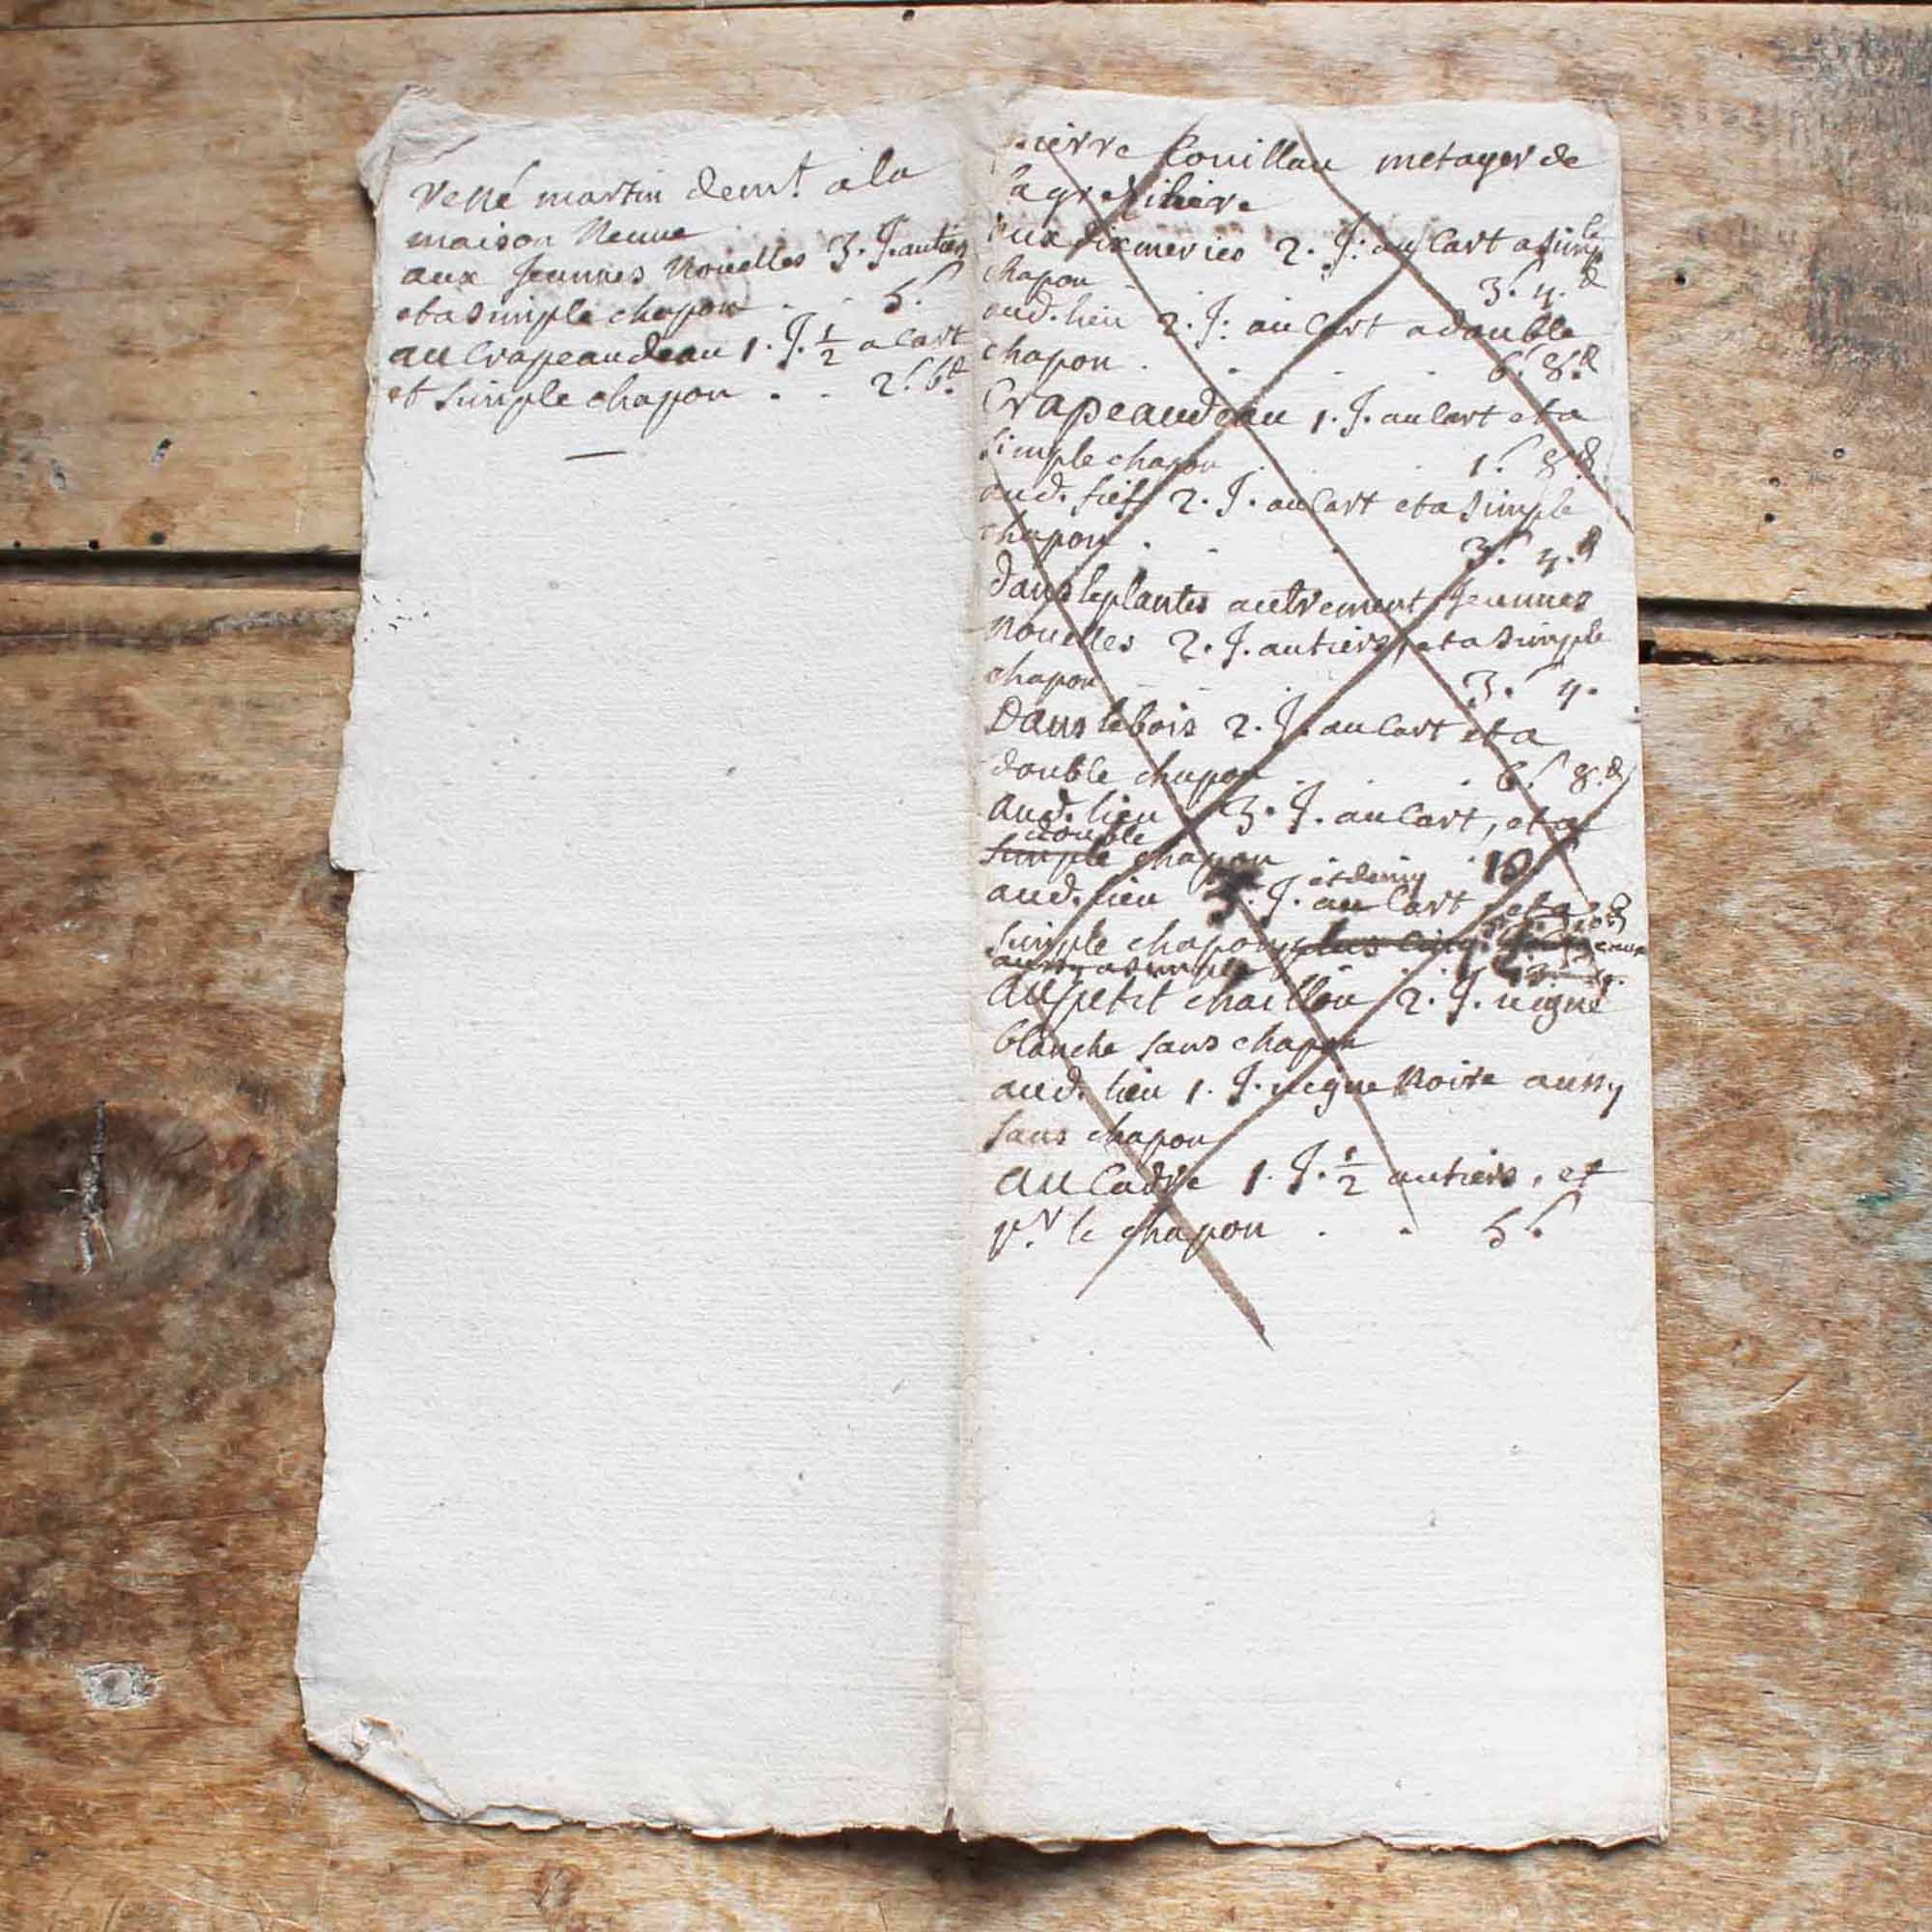 René martin demt a la
maison Neuue
aux Jeunnes Nouelles 3. J. autiers
et a simple chapon . . 5.s
au Crapeaudeau 1. J. 1/2 a cart
et simple chapon . . 2.s 6.d
pierre Couillau metayer de
la
aux sixmeries 2. J: au Cart a simple
chapon 3.s 4.d
aud. lieu 2. J: au Cart a double
chapon . . . . 6.s 8.d
Crapeaudeau 1. J. au Cart et a
simple chapon . . 1.s 8.d
aud. fief 2. J. au Cart et a simple
chapon . . . 3.s 4.d
dans le plantis autrement Jeunnes
Nouelles 2. J. autiers, et a simple
chapon . . 3.s 4.
Dans le bois 2. J. au Cart et a
double chapon . . 6.s 8.d
aud. lieu 3. J. au Cart, et a
double
simple chapon 10
et demy
aud. lieu 3. J. au Cart, et a
simple chapon, plus cinq
aussy a simple
au petit chaillou 2. J. uigne
blanche sans chapon
aud. lieu 1. J. uigne Noire aussy
sans chapon
au Cadre 1. J. 1/2 autiers, et
pr. le chapon . . 5.s